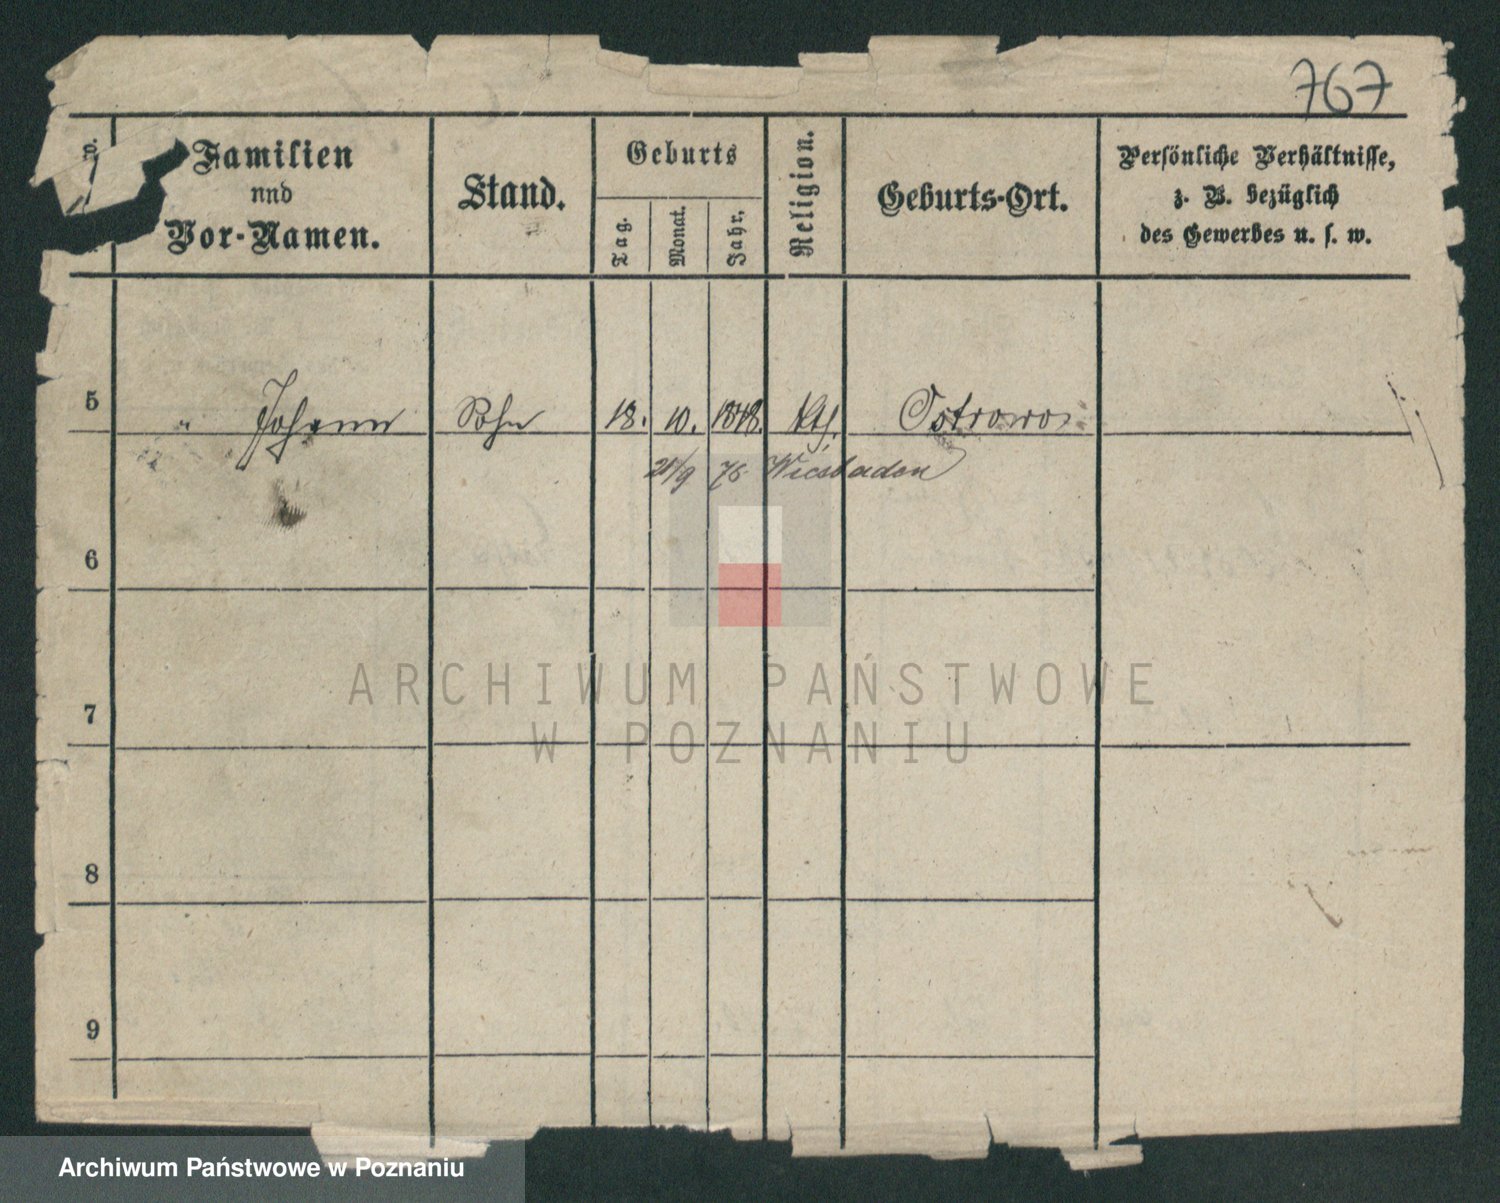 767
Familien
und
Vor-Namen.
Stand.
Geburts
Tag.
Monat.
Jahr,
Religion.
Geburts-Ort.
Persönliche Verhältnisse,
z. B. bezüglich
des Gewerbes u. s. w.
5 " Johann Sohn 18. 10. 1848. kth. Ostrowo
/9 76 Wiesbaden
6
7
8
9
ARCHIWUM PAŃSTWOWE
W POZNANIU
Archiwum Państwowe w Poznaniu